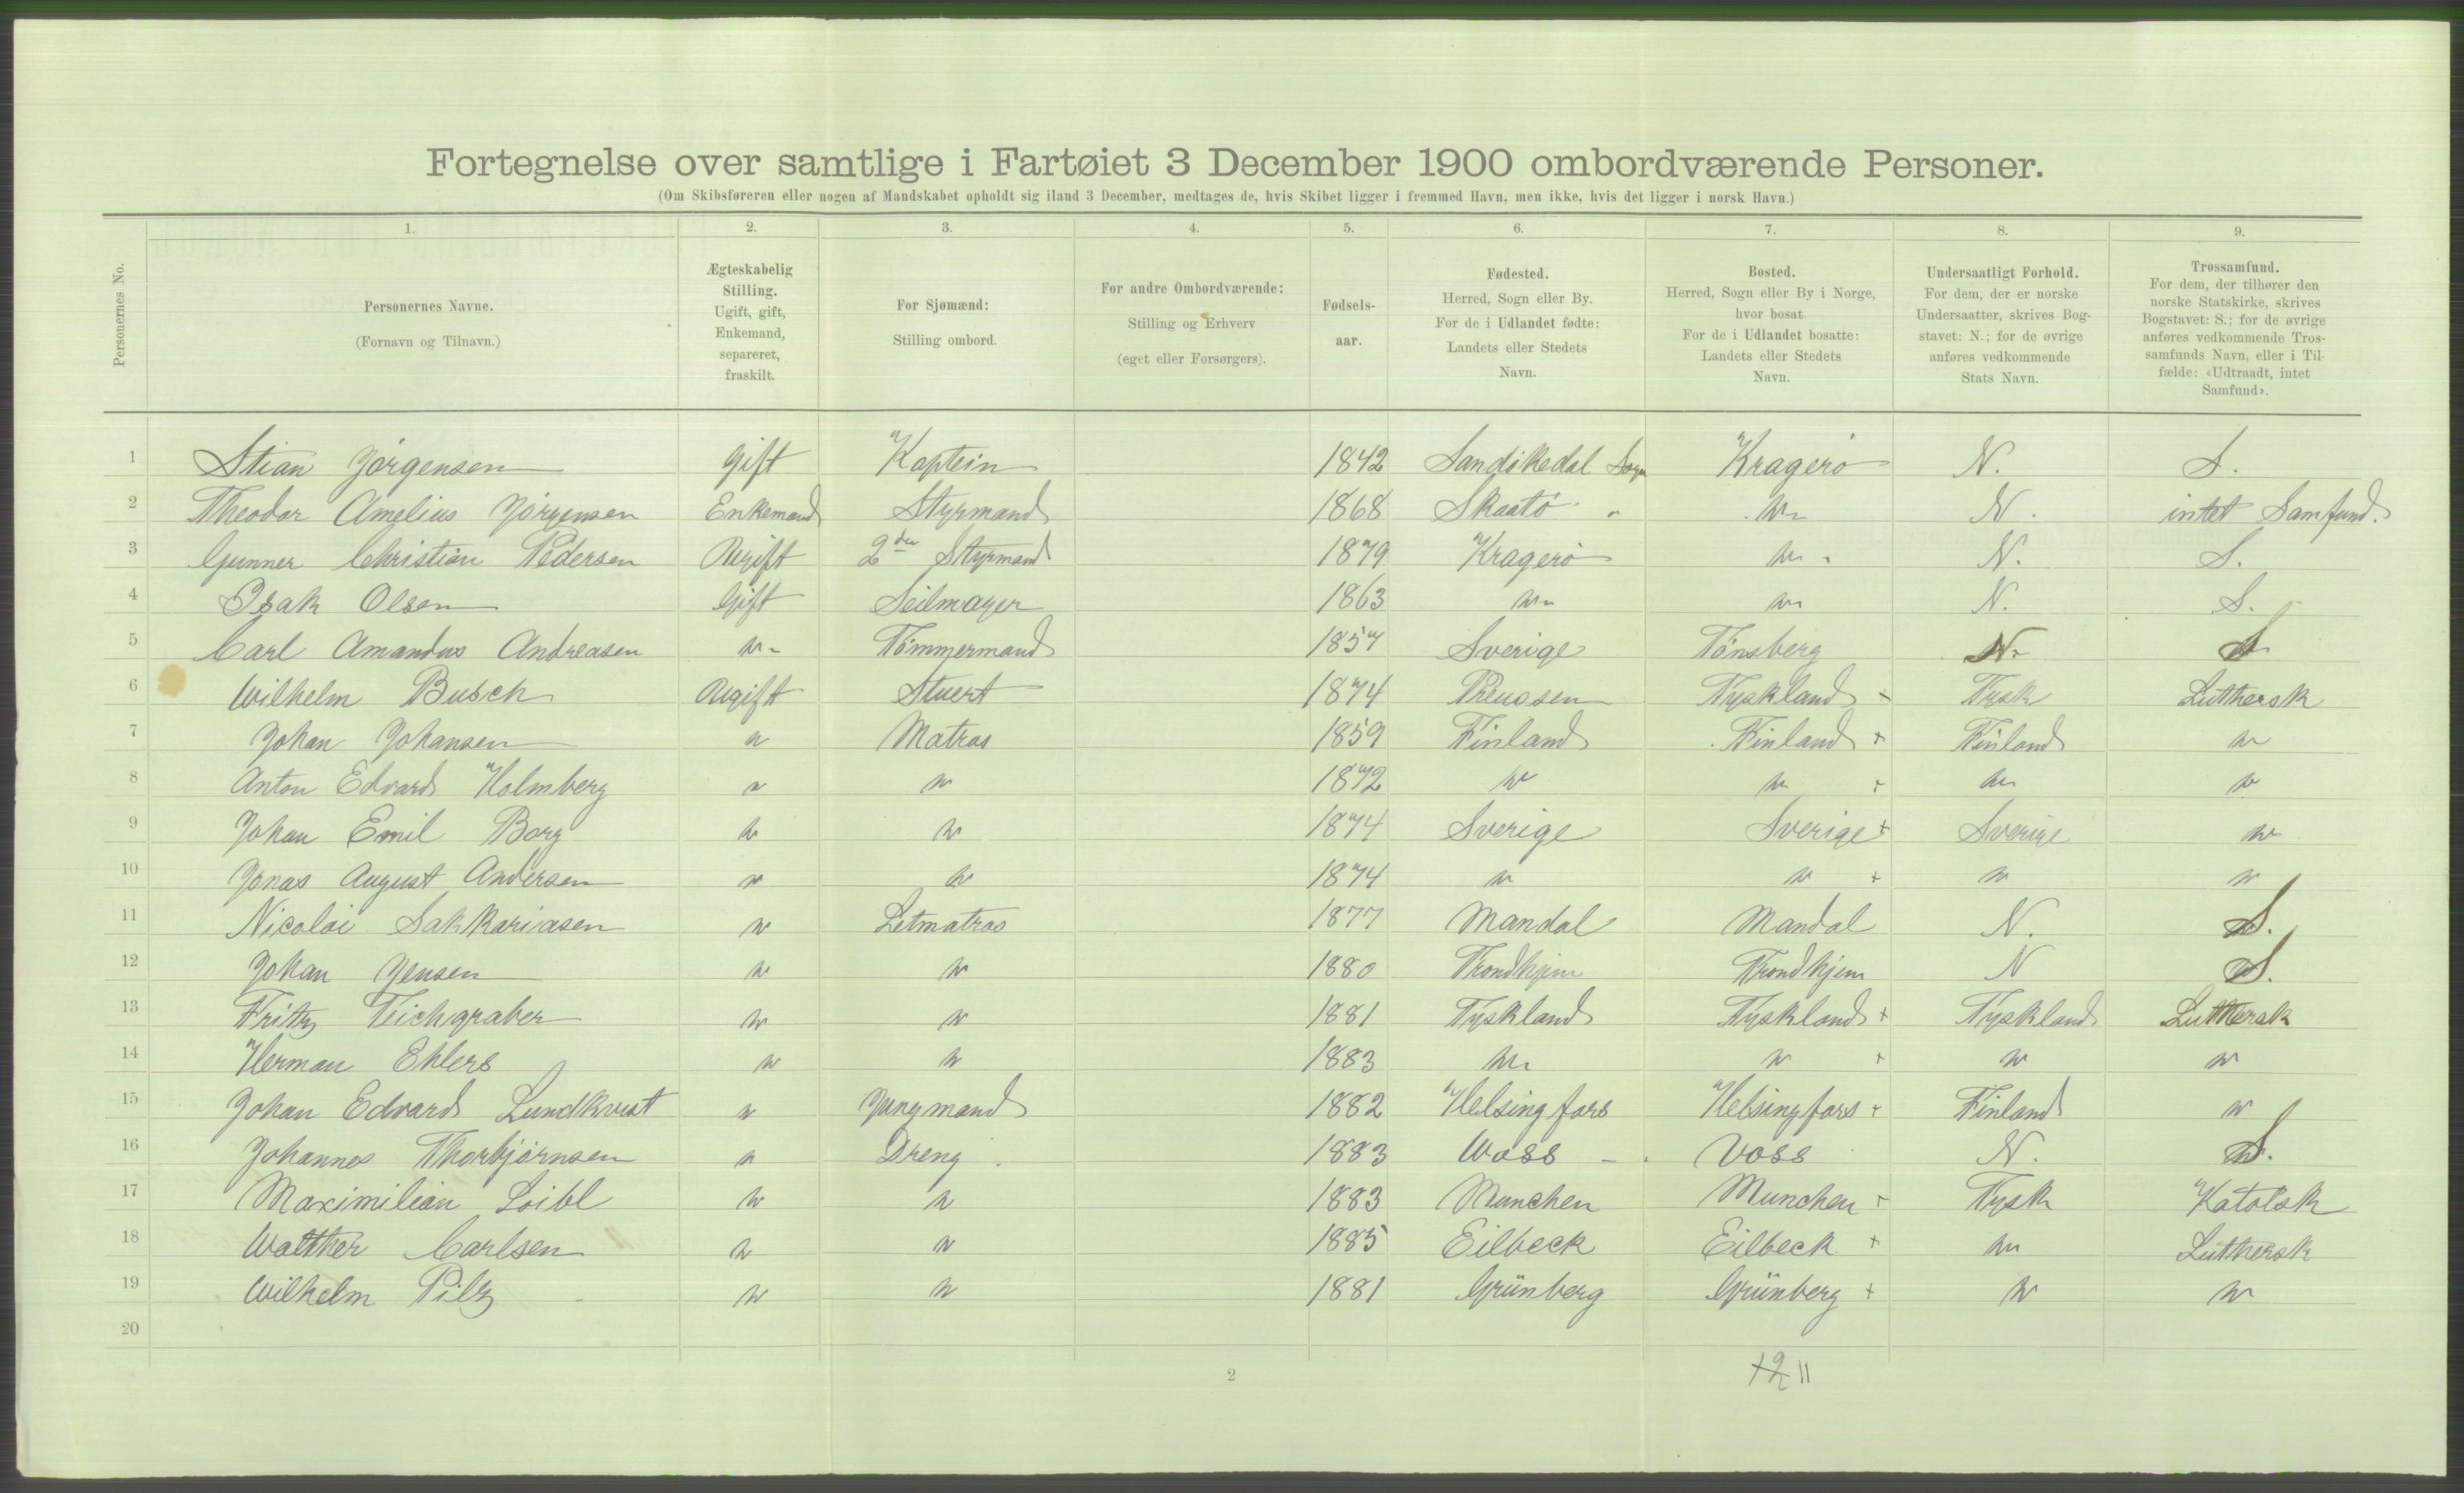 Fortegnelse over samtlige i Fartøiet 3 December 1900 ombordværende Personer.
(Om Skibsføreren eller nogen af Mandskabet opholdt sig iland 3 December, medtages de, hvis Skibet ligger i fremmed Havn, men ikke, hvis det ligger i norsk Havn.)
Personernes No.
1. 2. 3. 4. 5. 6. 7. 8. 9.
Personernes Navne. (Fornavn og Tilnavn.)
Ægteskabelig Stilling. Ugift, gift, Enkemand, separeret, fraskilt.
For Sjømænd: Stilling ombord.
For andre Ombordværende: Stilling og Erhverv (eget eller Forsørgers).
Fødsels-aar.
Fødested. Herred, Sogn eller By. For de i Udlandet fødte: Landets eller Stedets Navn.
Bosted. Herred, Sogn eller By i Norge, hvor bosat. For de i Udlandet bosatte: Landets eller Stedets Navn.
Undersaatligt Forhold. For dem, der er norske Undersaatter, skrives Bog-stavet: N.; for de øvrige anføres vedkommende Stats Navn.
Trossamfund. For dem, der tilhører den norske Statskirke, skrives Bogstavet: S.; for de øvrige anføres vedkommende Tros-samfunds Navn, eller i Til-fælde: «Udtraadt, intet Samfund».
1 Stian Jørgensen Gift Kaptein 1842 Sandøkedal Sogn Kragerø N. S.
2 Theodor Amelius Jørgensen Enkemand Styrmand 1868 Skaatø " " N. intet Samfund.
3 Gunner Christian Pedersen Ugift 2den Styrmand 1879 Kragerø " N. S.
4 Isak Olsen Gift Seilmager 1863 " " N. S.
5 Carl Amandus Andreasen " Tømmermand 1857 Sverige Tønsberg N. S
6 Wilhelm Busch Ugift Stuert 1874 Preussen Tyskland + Tysk Luthersk
7 Johan Johansen " Matros 1859 Finland Finland + Finland "
8 Anton Edvard Holmberg " " 1872 " " + " "
9 Johan Emil Borg " " 1874 Sverige Sverige + Sverige "
10 Jonas August Andersen " " 1874 " " + " "
11 Nicolai Sakkariasen " Letmatros 1877 Mandal Mandal N. S.
12 Johan Jensen " " 1880 Trondhjem Trondhjem N S.
13 Fritz Teichgraber " " 1881 Tyskland Tyskland + Tyskland Luthersk
14 Herman Ehlers " " 1883 " " + " "
15 Johan Edvard Lundkvist " Jungmand 1882 Helsingfors Helsingfors + Finland "
16 Johannes Thorbjørnsen " Dreng 1883 Woss Voss N. S.
17 Maximilian Loibl " " 1883 Munchen Munchen + Tysk Katolsk
18 Walther Carlsen " " 1885 Eilbeck Eilbeck + " Luthersk
19 Wilhelm Pilz " " 1881 Grünberg Grünberg + " "
20
2
12 11